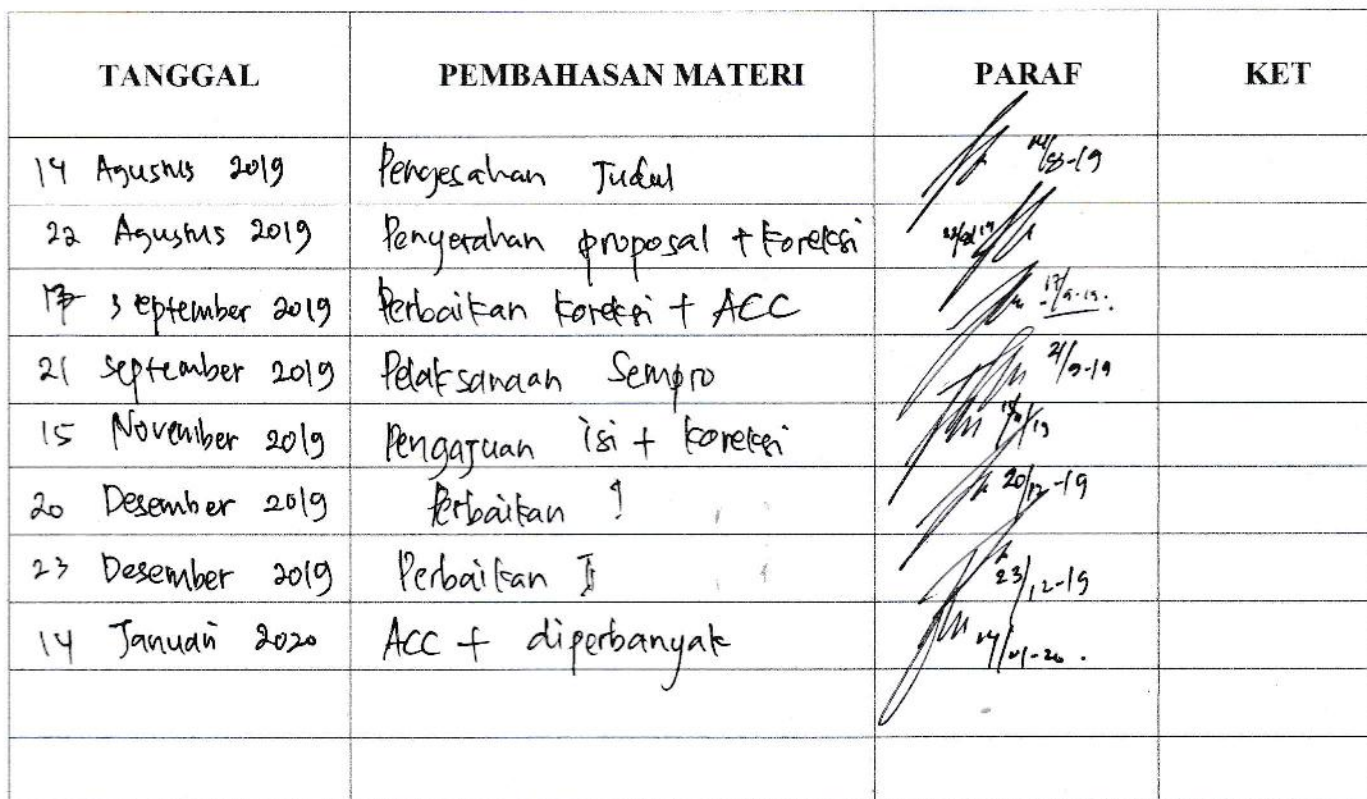 TANGGAL PEMBAHASAN MATERI PARAF KET
14 Agustus 2019 Pengesahan Judul 14/08-19
22 Agustus 2019 Penyerahan proposal + koreksi
17 September 2019 Perbaikan koreksi + ACC 17/9-19.
21 September 2019 Pelaksanaan Sempro 21/9-19
15 November 2019 Pengajuan isi + koreksi
20 Desember 2019 Perbaikan I 20/12-19
23 Desember 2019 Perbaikan II 23/12-19
14 Januari 2020 ACC + diperbanyak 14/01-20.